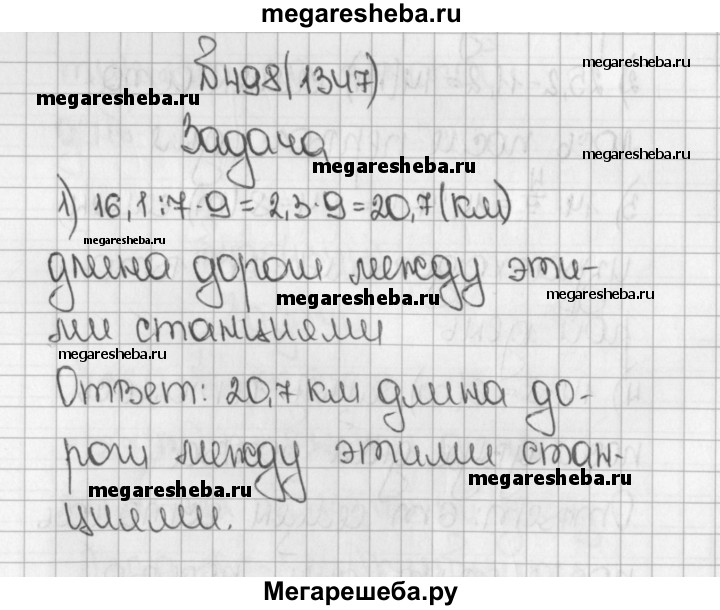 megaresheba.ru
№498(1347)
megaresheba.ru
megaresheba.ru
Задача
megaresheba.ru
megaresheba.ru
1) 16,1:7·9=2,3·9=20,7(км)
megaresheba.ru
длина дороги между эти-
megaresheba.ru
megaresheba.ru
ми станциями
megaresheba.ru
Ответ: 20,7 км длина до-
роги между этими стан-
megaresheba.ru
megaresheba.ru
циями.
Мегарешеба.ру